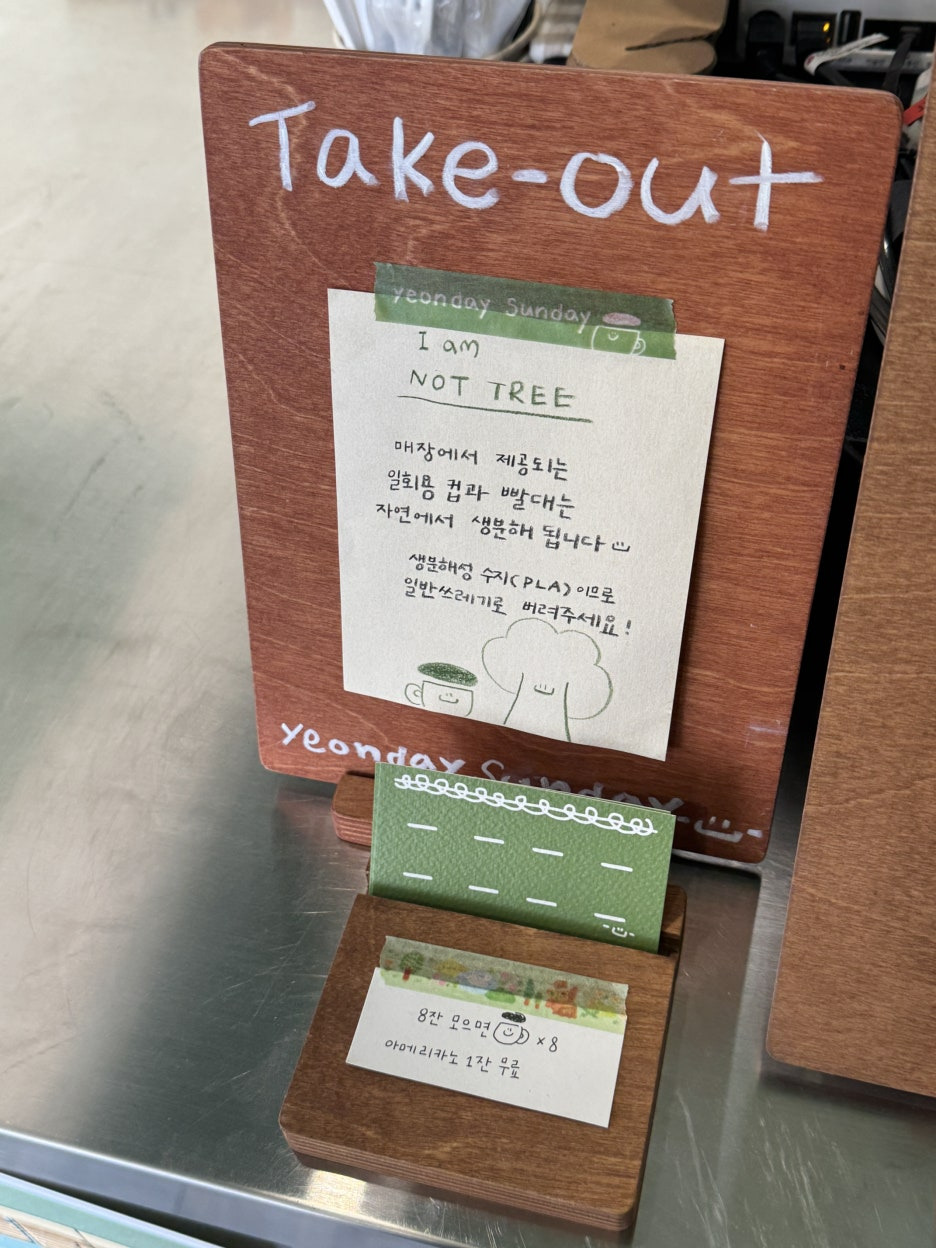 Take-out
yeonday Sunday
I am
NOT TREE
매장에서 제공되는
일회용 컵과 빨대는
자연에서 생분해 됩니다
생분해성 수지(PLA)이므로
일반쓰레기로 버려주세요!
yeonday Sunday
8잔 모으면 x8
아메리카노 1잔 무료